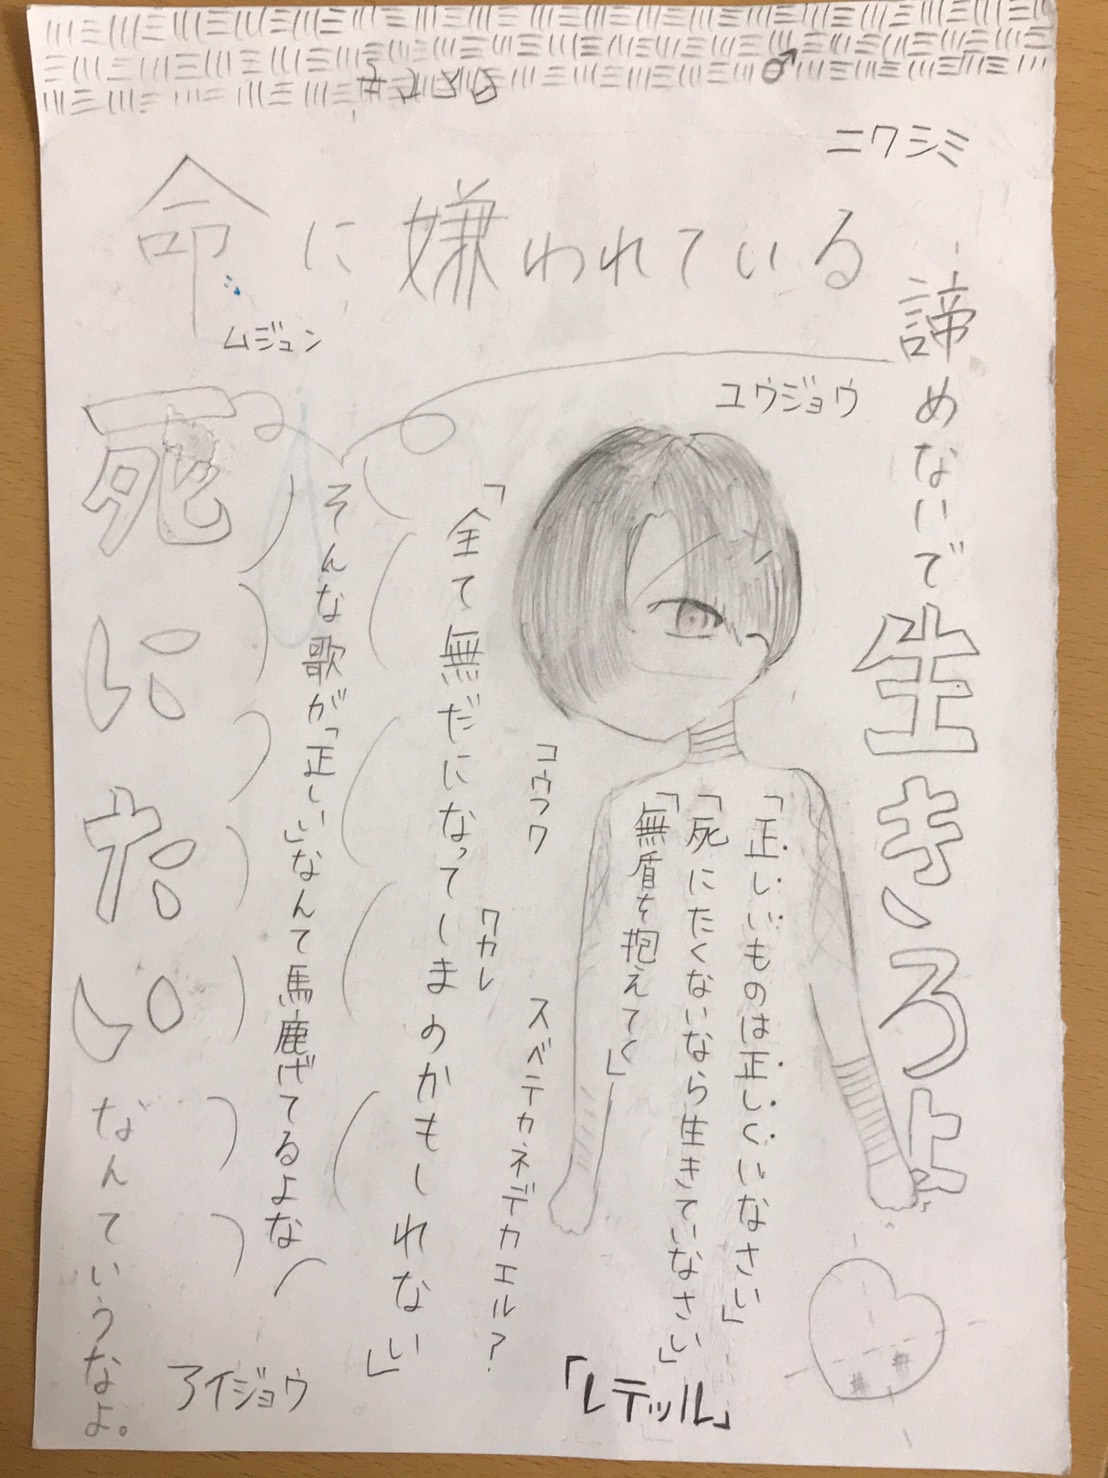 ニワシミ
命に嫌われている
ムジュン
ユウジョウ
諦めないで生きろよ
「正しいものは正しくいなさい」
「死にたくないなら生きていなさい」
「無盾を抱えてく」
コウフク
ワカレ
スベテカネデカエル?
「全て無だになってしまのかもしれない」
そんな歌が「正しい」なんて馬鹿げてるよな
死にたいなんていうなよ。
アイジョウ
「レテッル」